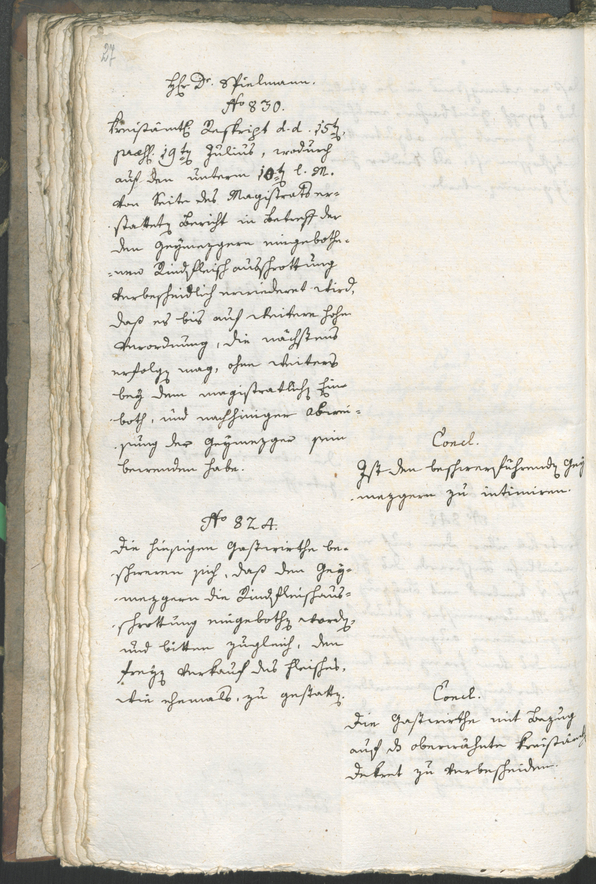 27
H\underline{er} Dr. Spielmann.
No 830.
Kreisämtl. Reskript d. d. 15t,
praes. 19t Julius, wodurch
auf den unterm 10t l. M.
von Seite des Magistrats er-
statteten Bericht in Betreff der
den Geymezgern eingebothe-
nen Rindfleischausschrottung
verbescheidlich erwiederet wird,
daß es bis auf weitere hohe
Verordnung, die nächstens
erfolgen mag, ohne weiters
bey dem magistratlichen Einboth
both, und nachheriger Abwei-
sung der Geymezger sein
bewenden habe.
Concl.
Ist den beschwerführenden Gey
mezgern zu intimiren.
No 824.
Die hiesigen Gastwirthe be-
schweren sich, daß den Gey-
mezgern die Rindfleischaus-
schrottung eingebothen worden,
und bitten zugleich, den
freyen Verkauf des Fleisches,
wie ehemals, zu gestatten.
Concl.
Die Gastwirthe mit Bezug
auf das oberwähnte Kreisämtl
Dekret zu verbescheiden.